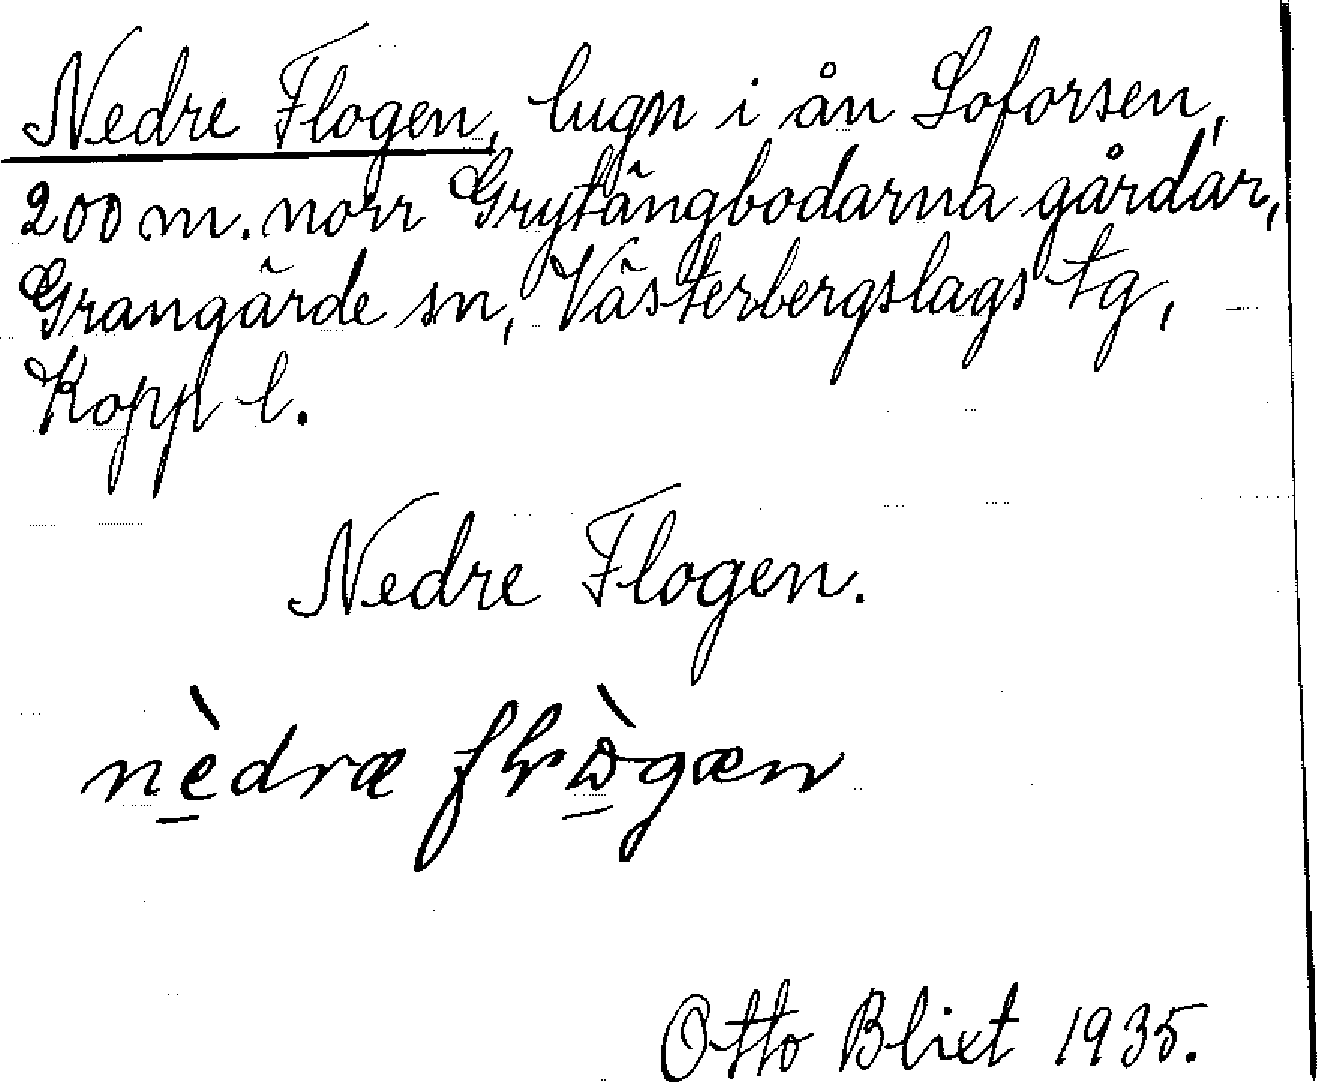 Nedre Flogen, lugn i ån Loforsen,
200 m. norr Grytängbodarna gårdar,
Grangärde sn, Västerbergslags tg,
Kopp l.
Nedre Flogen.
nèdræ
Otto Blixt 1935.